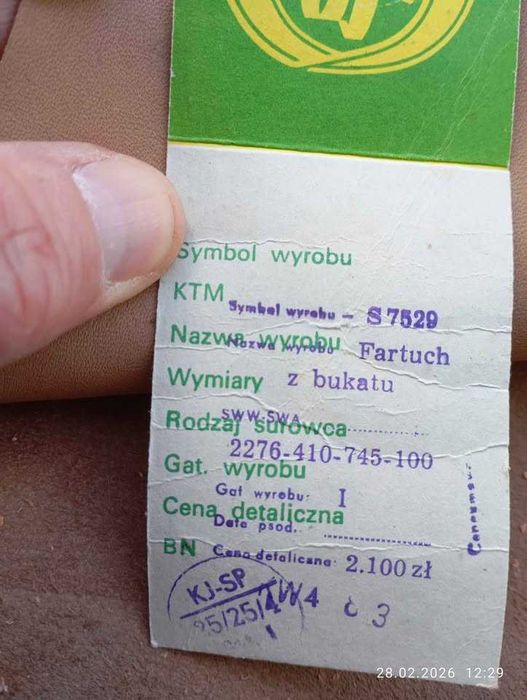 Symbol wyrobu
KTM
Symbol wyrobu - S 7529
Nazwa wyrobu
Nazwa wyrobu Fartuch
Wymiary z bukatu
SWW-SWA
Rodzaj surowca
2276-410-745-100
Gat. wyrobu
Gat wyrobu: I
Cena detaliczna
Data psod.
BN Cena detaliczna: 2.100 zł
KJ-SP
W4 c 3
25/25/4
28.02.2026 12:29